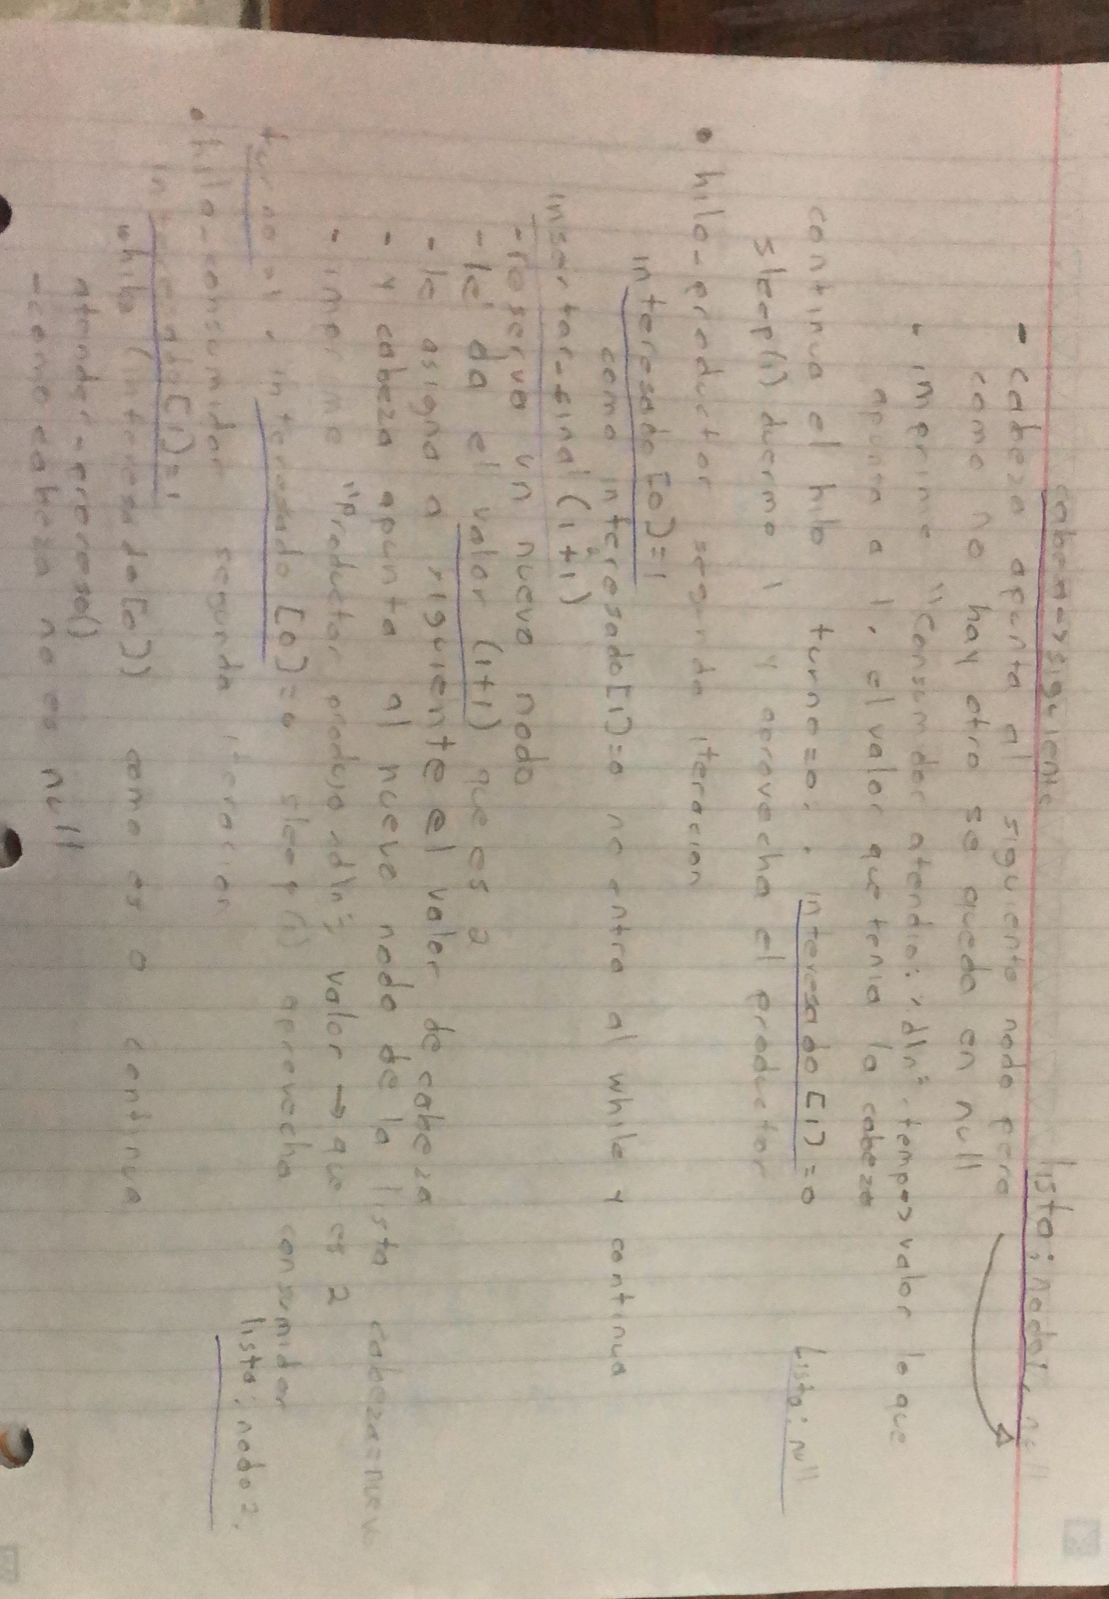 cabeza->siguiente
lista: nodo1, null
- cabeza apunta al siguiente nodo pero
como no hay otro se queda en null
- imprime "Consumidor atendio: %d\n", temp->valor lo que
apunta a 1, el valor que tenia la cabeza
continua el hilo turno=0; interesado[1]=0
lista: null
sleep(1) duerme 1 y aprovecha el productor
• hilo-productor segunda iteracion
interesado[0]=1
como interesado[1]=0 no entra al while y continua
insertar_final(1+1)
- reserva un nuevo nodo
- le da el valor (1+1) que es 2
- le asigna a siguiente el valor de cabeza
- y cabeza apunta al nuevo nodo de la lista cabeza=nuevo
- imprime "Productor produjo %d\n"; valor → que es 2
turno=1, interesado[0]=0 sleep(1) aprovecha consumidor
lista: nodo2,
• hilo-consumidor segunda iteracion
interesado[1]=1
while (interesado[0]) como es 0 continua
atender_proceso()
- como cabeza no es null